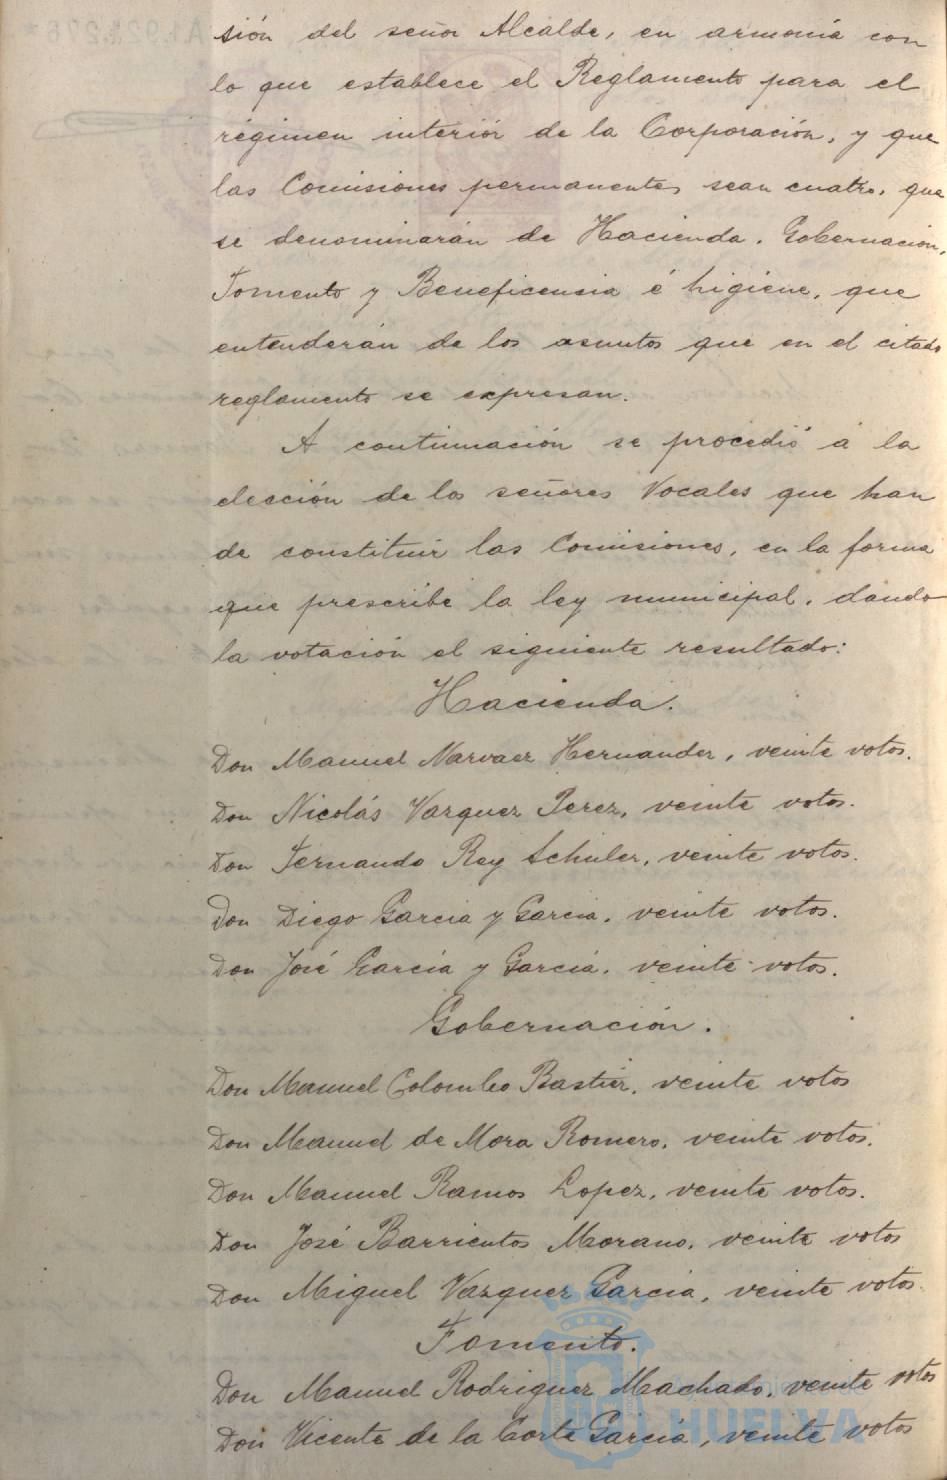 sión del señor Alcalde, en armonía con
lo que establece el Reglamento para el
régimen interiór de la Corporación, y que
las Comisiones permanentes sean cuatro, que
se denominarán de Hacienda, Gobernación,
Fomento y Beneficensia é higiene, que
entenderán de los asuntos que en el citado
reglamento se expresan.
A continuación se procedió á la
elección de los señores Vocales que han
de constituir las Comisiones, en la forma
que prescribe la ley municipal, dando
la votación el siguiente resultado:
Hacienda.
Don Manuel Narvaez Hernandez, veinte votos.
Don Nicolás Vazquez Perez, veinte votos.
Don Fernando Rey Schuler, veinte votos.
Don Diego Garcia y Garcia, veinte votos.
Don José Garcia y Garcia, veinte votos.
Gobernación.
Don Manuel Colombo Bastier, veinte votos
Don Manuel de Mora Romero, veinte votos.
Don Manuel Ramos Lopez, veinte votos.
Don José Barrientos Morano, veinte votos
Don Miguel Vazquez Garcia, veinte votos.
Fomento.
Don Manuel Rodriguez Machado, veinte votos
Don Vicente de la Corte Garcia, veinte votos
Ayuntamiento de
HUELVA